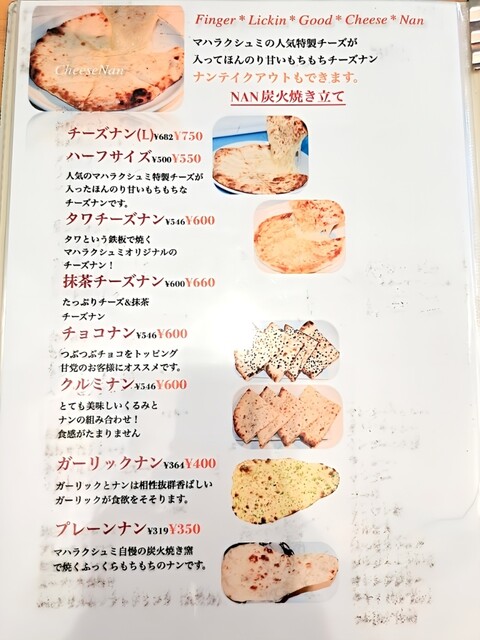 Finger*Lickin*Good*Cheese*Nan
CheeseNan
マハラクシュミの人気特製チーズが
入ってほんのり甘いもちもちチーズナン
ナンテイクアウトもできます。
NAN炭火焼き立て
チーズナン(L)¥682¥750
ハーフサイズ¥500¥550
人気のマハラクシュミ特製チーズが
入ったほんのり甘いもちもちな
チーズナンです。
タワチーズナン¥546¥600
タワという鉄板で焼く
マハラクシュミオリジナルの
チーズナン！
抹茶チーズナン¥600¥660
たっぷりチーズ&抹茶
チーズナン
チョコナン¥546¥600
つぶつぶチョコをトッピング
甘党のお客様にオススメです。
クルミナン¥546¥600
とても美味しいくるみと
ナンの組み合わせ！
食感がたまりません
ガーリックナン¥364¥400
ガーリックとナンは相性抜群香ばしい
ガーリックが食欲をそそります。
プレーンナン¥319¥350
マハラクシュミ自慢の炭火焼き窯
で焼くふっくらもちもちのナンです。